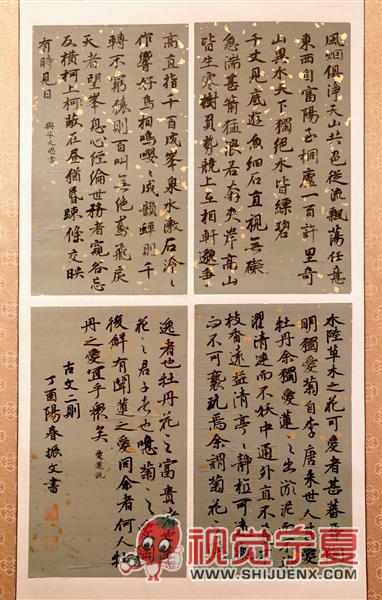 風烟俱淨天山共色從流飄蕩任意
東西自富陽至桐廬一百許里奇
山異水天下獨絕水皆縹碧
千丈見底遊魚細石直視無礙
急湍甚箭猛浪若奔夾岸高山
皆生寒樹負勢競上互相軒邈爭
高直指千百成峯泉水激石泠泠
作響好鳥相鳴嚶嚶成韻蟬則千
轉不窮猨則百叫無絕鳶飛戾
天者望峯息心經綸世務者窺谷忘
反橫柯上柯蔽在晝猶昏疎條交映
有時見日
與朱元思書
水陸草木之花可愛者甚蕃
明獨愛菊自李唐來世人甚愛
牡丹余獨愛蓮之出淤泥而不
濯清漣而不妖中通外直不
枝香遠益清亭亭靜植可遠
而不可褻玩焉余謂菊花之
逸者也牡丹花之富貴者也
花之君子者也噫菊之
後鮮有聞蓮之愛同余者何人牡
丹之愛宜乎衆矣
愛蓮說
古文二則
丁酉陽春振文書
视觉宁夏
WWW.SHIJUENX.COM